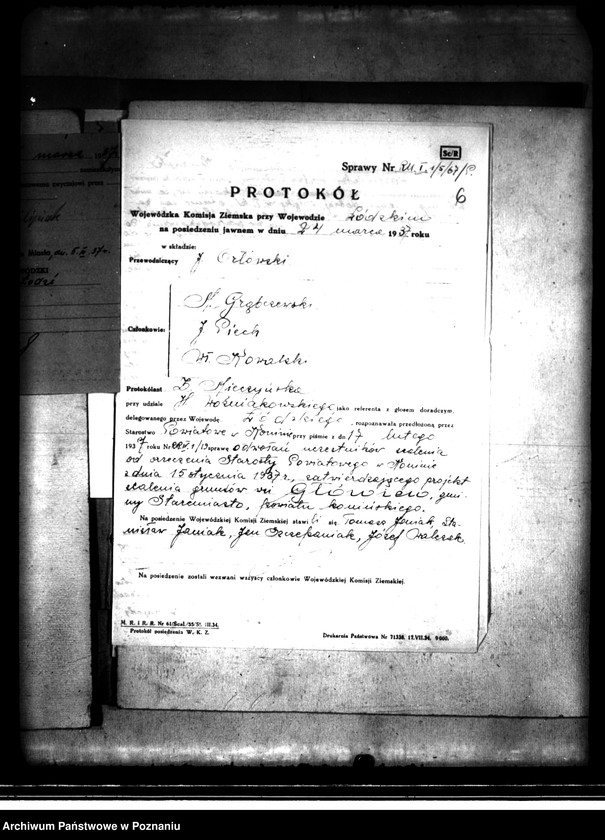 Sc/R
Sprawy Nr
6
PROTOKÓŁ
Wojewódzka Komisja Ziemska przy Wojewodzie Łódzkim
na posiedzeniu jawnem w dniu 24 marca 1937 roku
w składzie:
Przewodniczący J Orłowski
St. Grąbczewski
Członkowie: J Piech
Wł. Kowalski
Protokólant Z.
przy udziale H Woźniakowskiego jako referenta z głosem doradczym,
delegowanego przez Wojewodę Łódzkiego, rozpoznawała przedłożoną przez
Starostwo Powiatowe w Koninie przy piśmie z dn. 17 lutego
1937 roku Nr sprawę odwołań uczestników scalenia
od orzeczenia Starosty Powiatowego w Koninie
z dnia 15 stycznia 1937 r., zatwierdzającego projekt
scalenia gruntów wsi Główiew, gmi-
ny Staremiasto, powiatu konińskiego.
Na posiedzenie Wojewódzkiej Komisji Ziemskiej stawili się Tomasz Janiak, Sta-
nisław Janiak, Jan Szczepaniak, Józef Walczak.
Na posiedzenie zostali wezwani wszyscy członkowie Wojewódzkiej Komisji Ziemskiej.
M. R. i R. R. Nr 61/Scal./55/5. III.34.
Protokół posiedzenia W. K. Z.
Drukarnia Państwowa Nr 71338. 17.VII.34. 9000.
marca
Miasto, dn. 5 II 37 r.
Archiwum Państwowe w Poznaniu